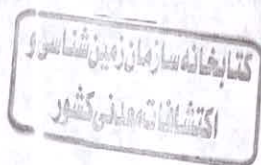 کتابخانه سازمان زمین شناسی و
اکتشافات معدنی کشور